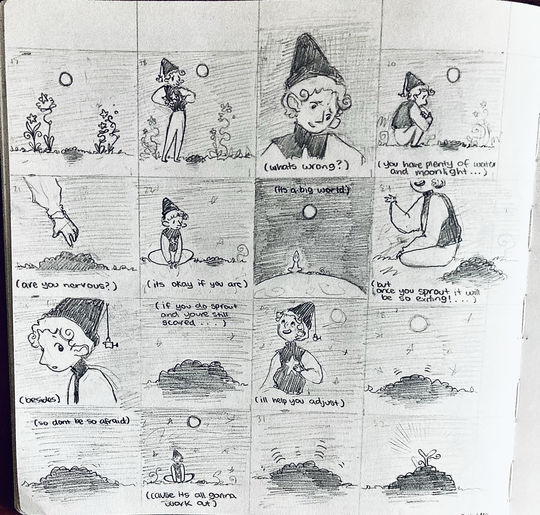 17
18
19
20
(whats wrong?)
(you have plenty of water
and moonlight...)
21
22
(its a big world)
24
(are you nervous?)
(its okay if you are)
(but
once you sprout it will
be so exiting!...)
(if you do sprout
and youre still
scared....)
(besides)
(ill help you adjust)
(so dont be so afraid)
(cause its all gonna
work out)
31
32